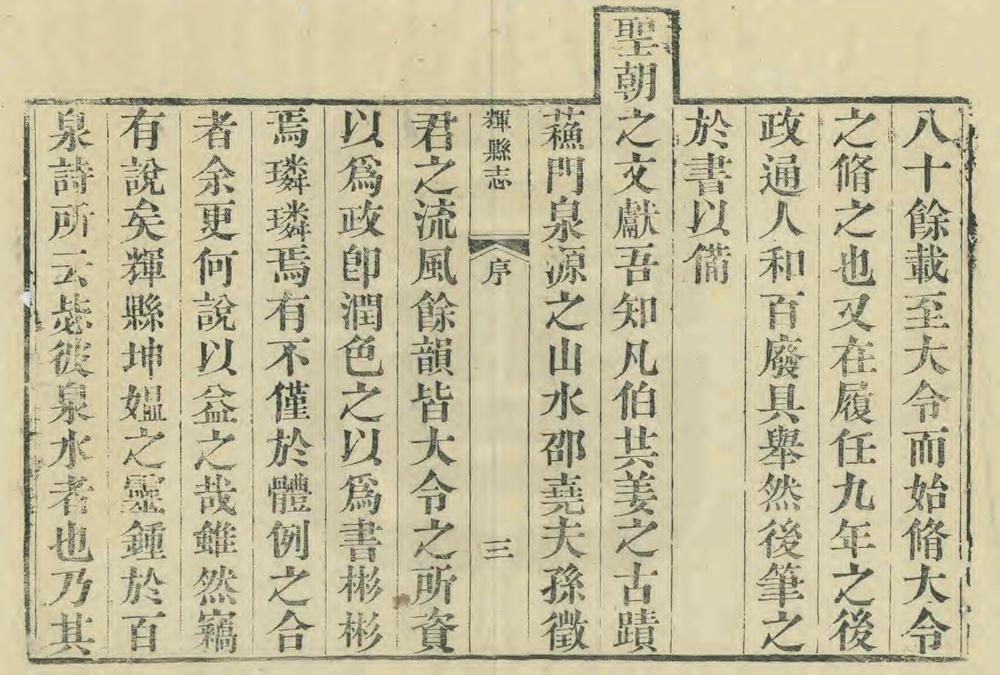 八十餘載至大令而始脩大令
之脩之也又在履任九年之後
政通人和百廢具舉然後筆之
於書以備
聖朝之文獻吾知凡伯共姜之古蹟
蘓門泉源之山水邵堯夫孫徵
輝縣志 序 三
君之流風餘韻皆大令之所資
以爲政卽潤色之以爲書彬彬
焉璘璘焉有不僅於體例之合
者余更何說以益之哉雖然竊
有說矣輝縣坤媼之靈鍾於百
泉詩所云毖彼泉水者也乃其